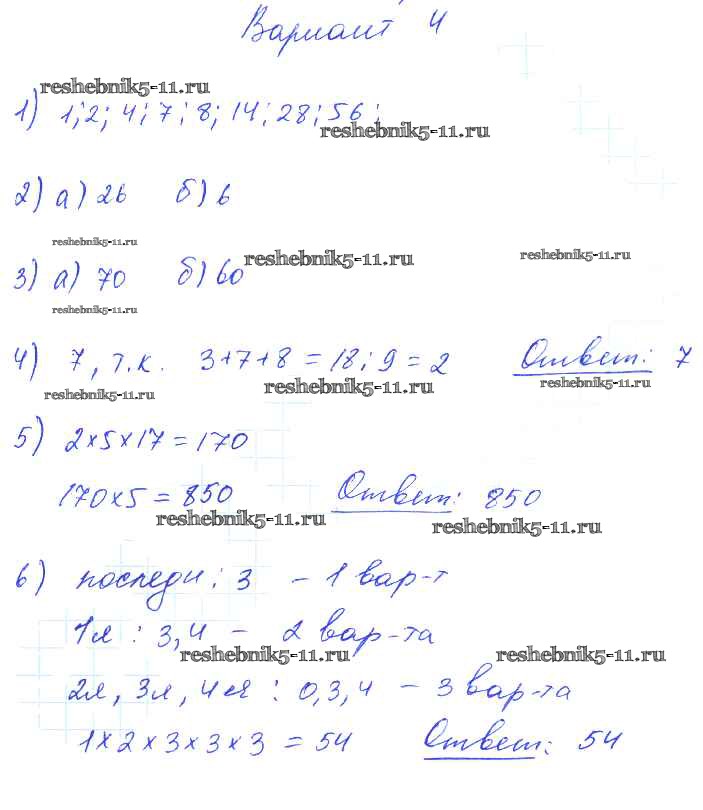 Вариант 4
reshebnik5-11.ru
1) 1; 2; 4; 7; 8; 14; 28; 56;
reshebnik5-11.ru
2) а) 26 б) 6
reshebnik5-11.ru reshebnik5-11.ru reshebnik5-11.ru
3) а) 70 б) 60
reshebnik5-11.ru
4) 7, т.к. 3+7+8 = 18 : 9 = 2 Ответ: 7
reshebnik5-11.ru reshebnik5-11.ru reshebnik5-11.ru
5) 2×5×17 = 170
170×5 = 850 Ответ: 850
reshebnik5-11.ru reshebnik5-11.ru
6) последн: 3 – 1 вар-т
1я : 3,4 – 2 вар-та
reshebnik5-11.ru reshebnik5-11.ru
2я, 3я, 4ая : 0,3,4 – 3 вар-та
1×2×3×3×3 = 54 Ответ: 54